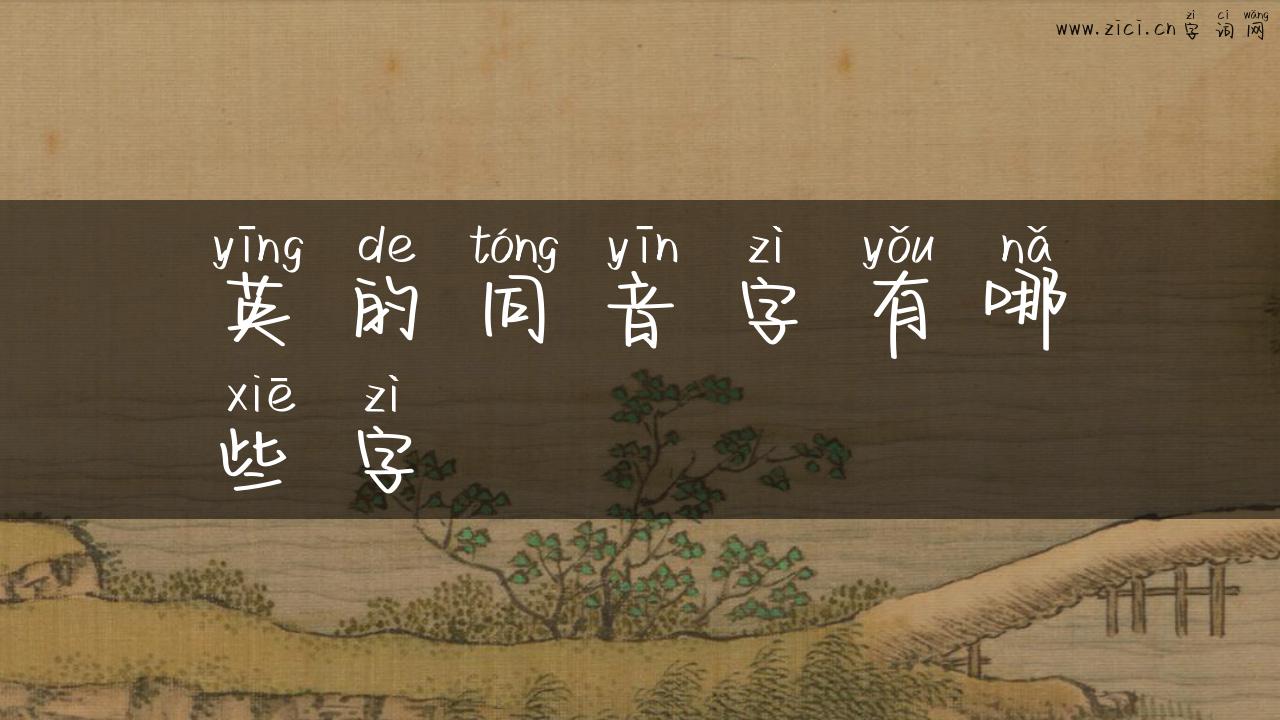 zì cí wǎng
www.zici.cn 字 词 网
yīng de tóng yīn zì yǒu nǎ
英 的 同 音 字 有 哪
xiē zì
些 字